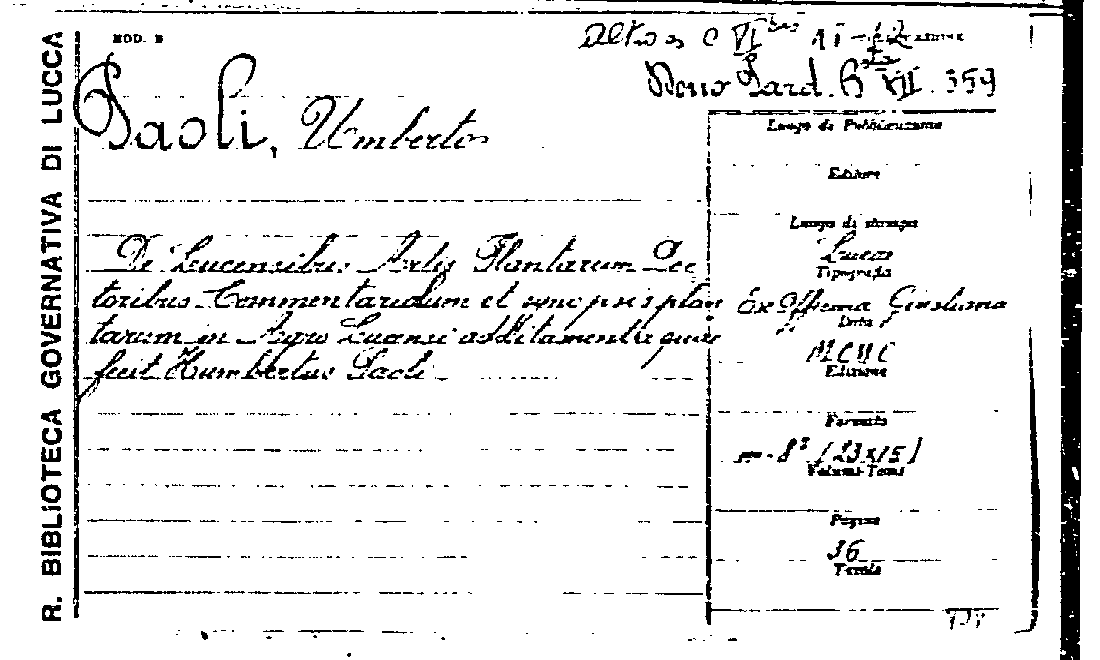 R. BIBLIOTECA GOVERNATIVA DI LUCCA
MOD. B
Altro es C VI
Dono Sard. B VII. 359
Paoli, Umberto
De Lucensibus Artis Plantarum Lec
toribus Commentariolum et synopsis plan
tarum in Agro Lucensi additamenta quae
fecit Humbertus Paoli
Luogo di Pubblicazione
Editore
Luogo di stampa
Lucae
Tipografia
Ex Officina Giustiana
Data
MCMC
Edizione
Formato
8° (23x15)
Volumi-Tomi
Pagine
36
Tavole